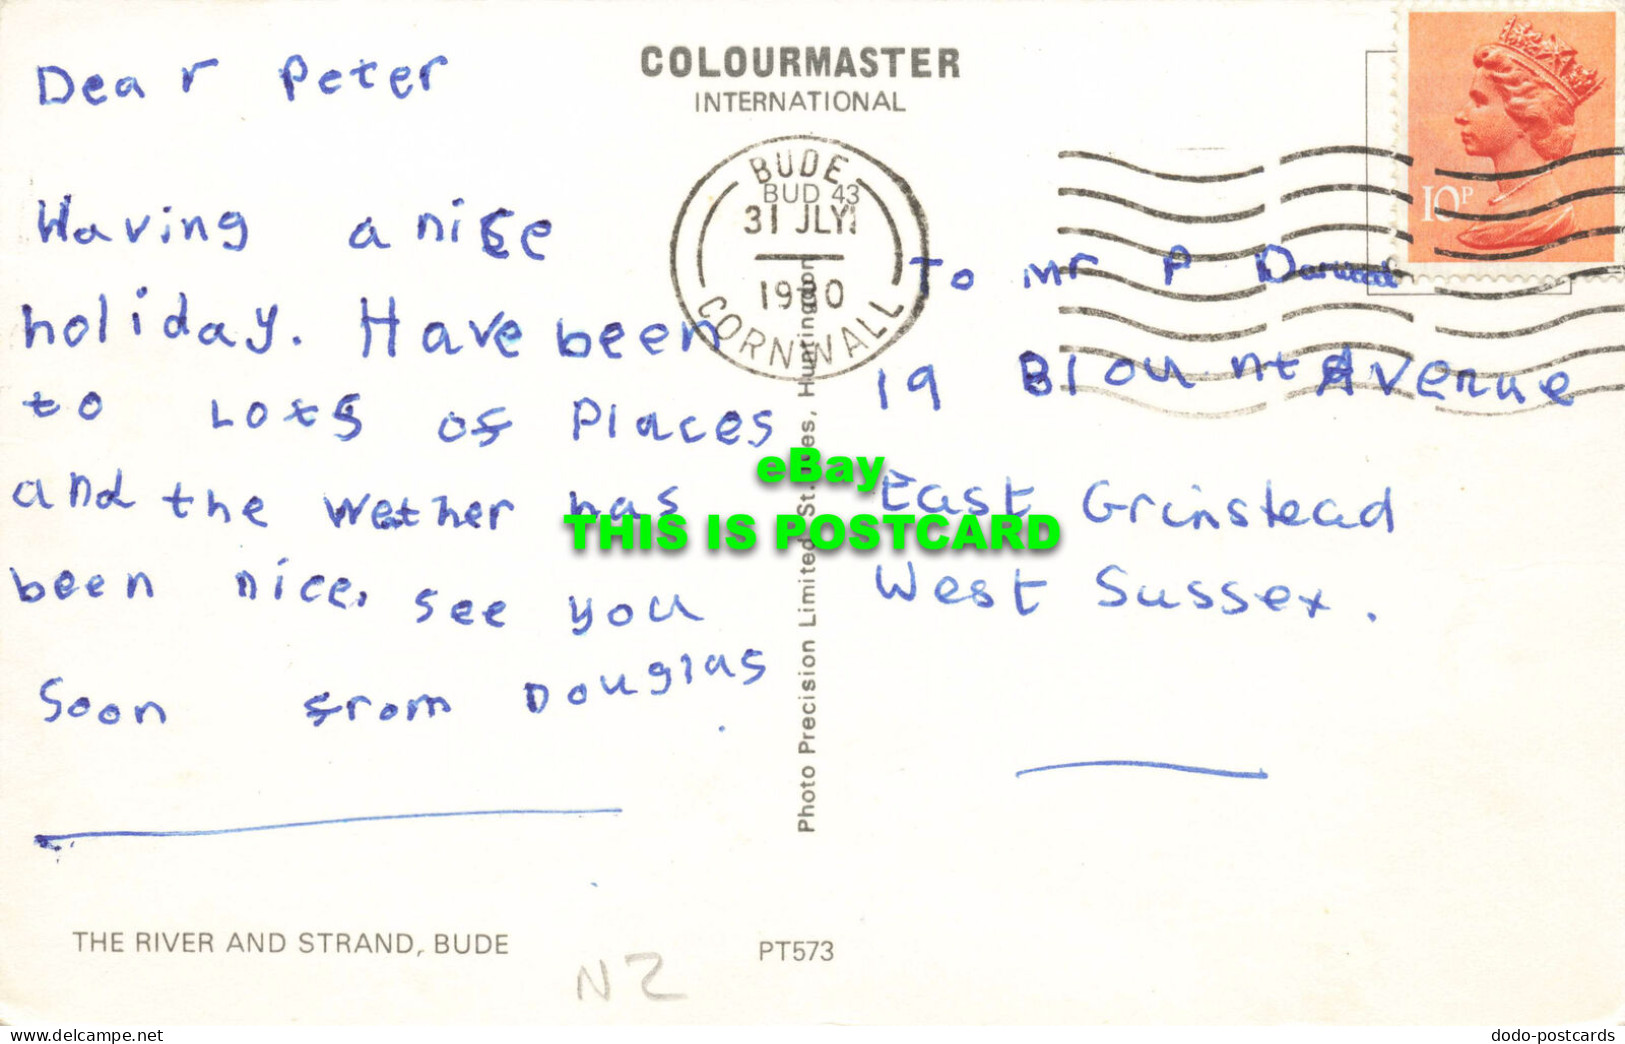 Dear Peter
Having a nice
holiday. Have been
to Lots of Places
and the wether has
been nice. see you
Soon from Douglas
COLOURMASTER
INTERNATIONAL
BUDE
BUD 43
31 JLY
1980
CORNWALL
10P
To Mr P
19 Blount Avenue
East Grinstead
West Sussex.
Photo Precision Limited, St. Ives, Huntingdon
eBay
THIS IS POSTCARD
THE RIVER AND STRAND, BUDE
PT573
NZ
delcampe.net
dodo-postcards